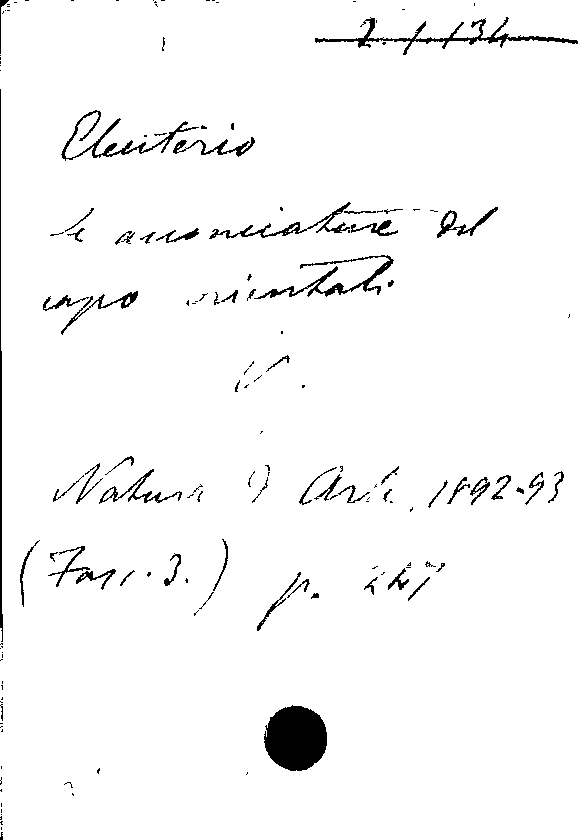 2.1.134
Eleuterio
Le acconciature del
capo orientali
V.
Natura ed Arte, 1892-93
(Fasc. 3.) p. 247